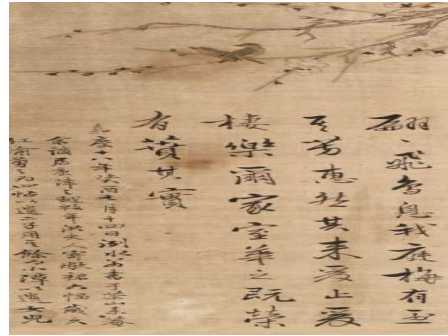 翩〃飛鳥息我庭梅有烈
其芳惠然其來爰止爰
棲樂爾家室華之旣榮
有蕡其實
嘉慶十八年癸酉七月十四日洌水翁書于茶山東菴
余謫居康津之越數年洪夫人寄敝裙六幅歲久
紅渝剪之爲四帖以遺二子用其餘爲小障以遺女兒